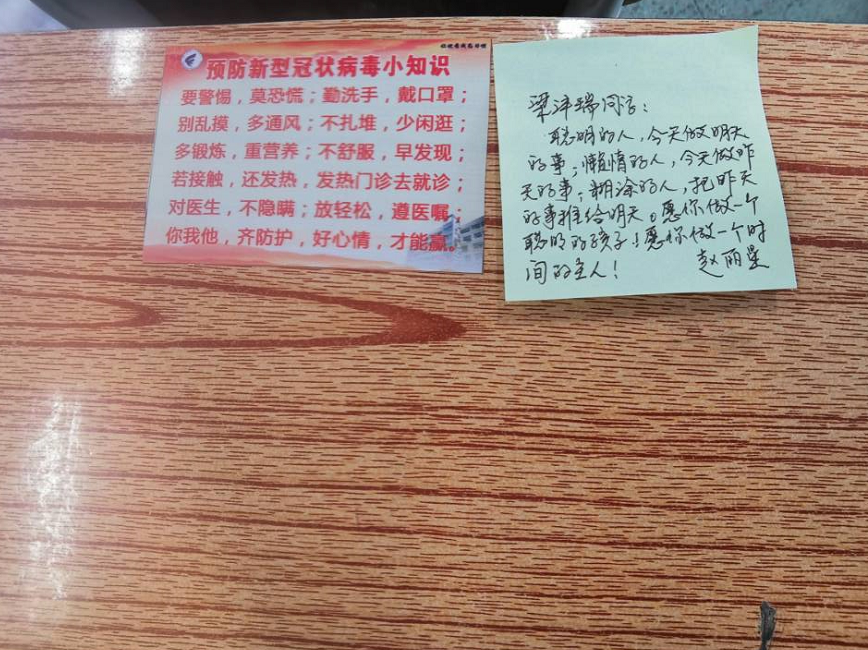 预防新型冠状病毒小知识
要警惕，莫恐慌；勤洗手，戴口罩；
别乱摸，多通风；不扎堆，少闲逛；
多锻炼，重营养；不舒服，早发现；
若接触，还发热，发热门诊去就诊；
对医生，不隐瞒；放轻松，遵医嘱；
你我他，齐防护，好心情，才能赢。
梁沣瑞同学：
聪明的人，今天做明天
的事；懒惰的人，今天做昨
天的事；糊涂的人，把昨天
的事推给明天。愿你做一个
聪明的孩子！愿你做一个时
间的主人！
赵丽星